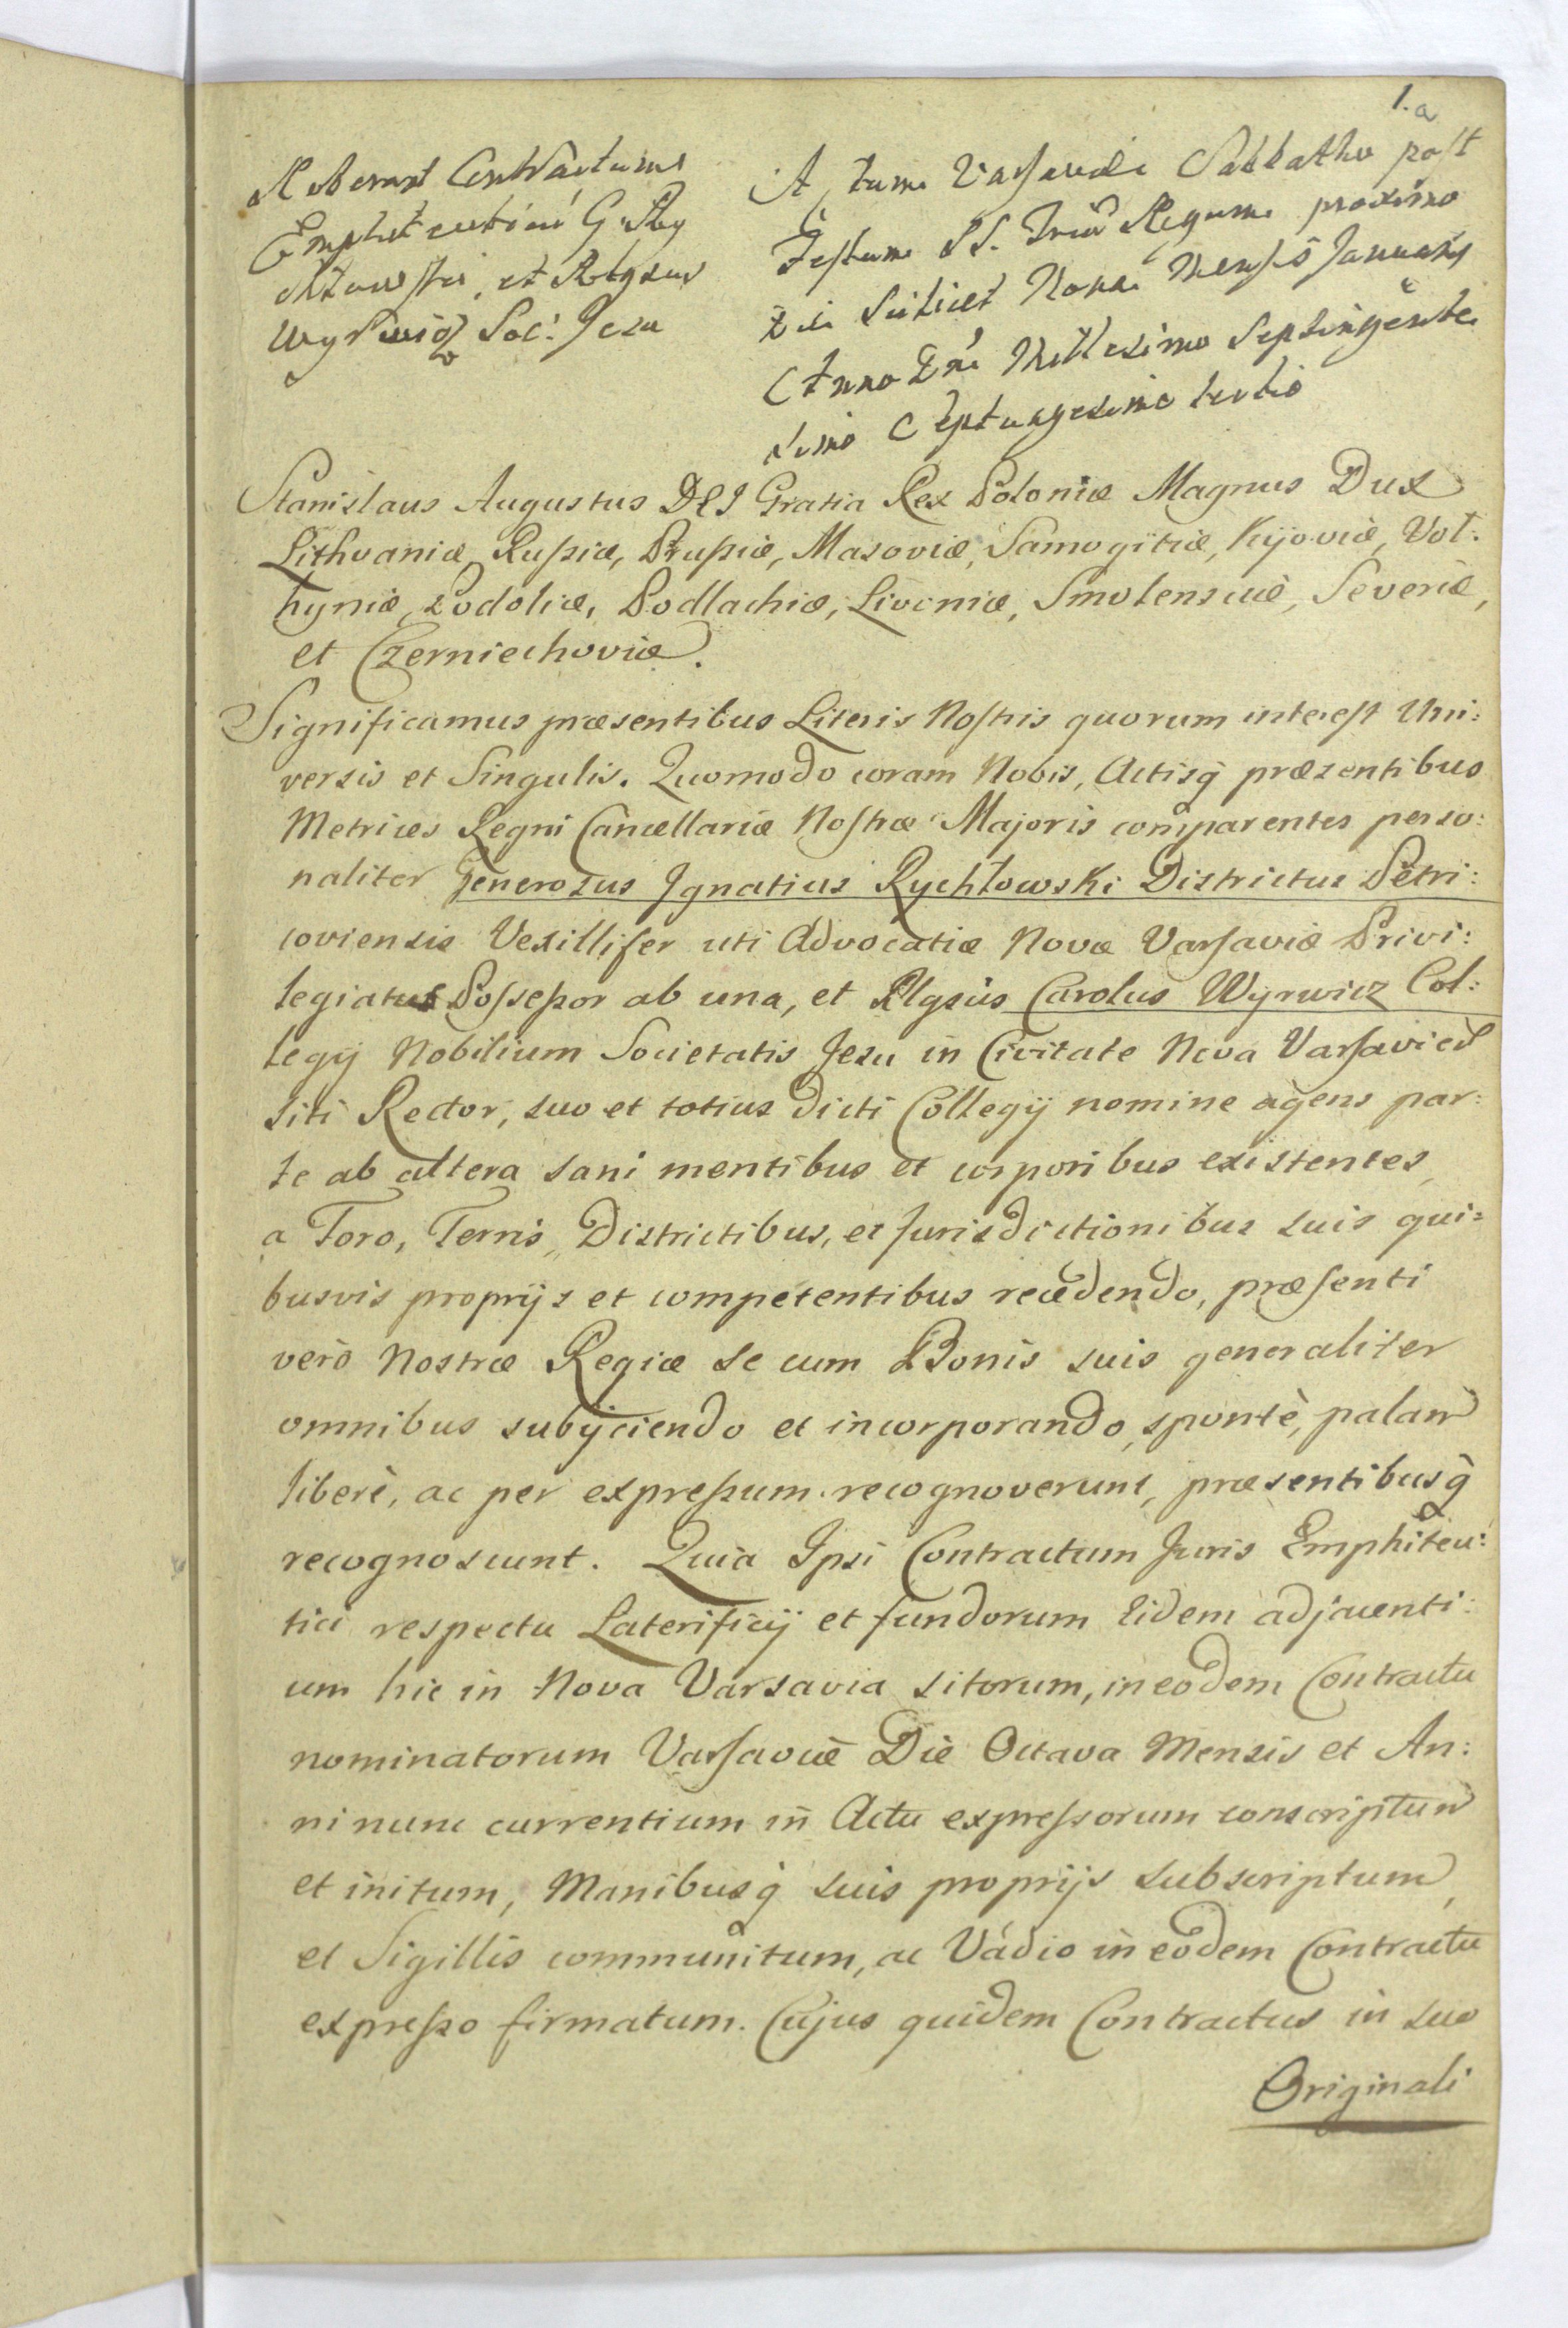 1.a
Roborant Contractum
Emphiteuticū G. Ry
chłowski, et Rlgsus
Wyrwicz Soc: Jesu
Actum Varsaviæ Sabbatho post
Festum SS. Triū Regum proximo
die scilicet Nona Mensis Januarij
Anno Dni Millesimo Septingente
simo Septuagesimo tertio
Stanislaus Augustus DEI Gratia Rex Poloniæ Magnus Dux
Lithvaniæ, Rußiæ, Prußiæ, Masoviæ, Samogitiæ, Kijoviæ, Vol:
hyniæ, Podoliæ, Podlachiæ, Livoniæ, Smolensciæ, Severiæ,
et Czerniechoviæ.
Significamus præsentibus Literis Nostris quorum interest Uni:
versis et Singulis. Quomodo coram Nobis, Actisq̃ præzentibus
Metrices Regni Cancellariæ Nostræ Majoris comparentes perso:
naliter Generosus Ignatius Rychłowski Districtus Petri:
coviensis Vexillifer uti Advocatiæ Novæ Varsaviæ Privi:
legiatus Possessor ab una, et Rlgsus Carolus Wyrwicz Col:
legij Nobilium Societatis Jesu in Civitate Nova Varsavien̄
siti Rector, suo et totius dicti Collegij nomine agens par:
te ab altera sani mentibus et corporibus existentes,
a Foro, Terris, Districtibus, et Jurisdictionibus suis qui:
busvis proprijs et competentibus recedendo, præsenti
verò Nostræ Regiæ se cum Bonis suis generaliter
omnibus subijciendo et incorporando, spontè, palam
liberè, ac per expreßum recognoverunt, præsentibusq̃
recognoscunt. Quia Ipsi Contractum Juris Emphiteu:
tici respectu Laterificij et fundorum Eidem adjacenti:
um hic in Nova Varsavia sitorum, in eodem Contractu
nominatorum Varsaviæ Die Octava Mensis et An:
ni nunc currentium in Actu expressorum conscriptum
et initum, Manibusq̃ suis proprijs subscriptum,
et Sigillis communitum, ac Vadio in eodem Contractu
expreßo firmatum. Cujus quidem Contractus in suo
Originali